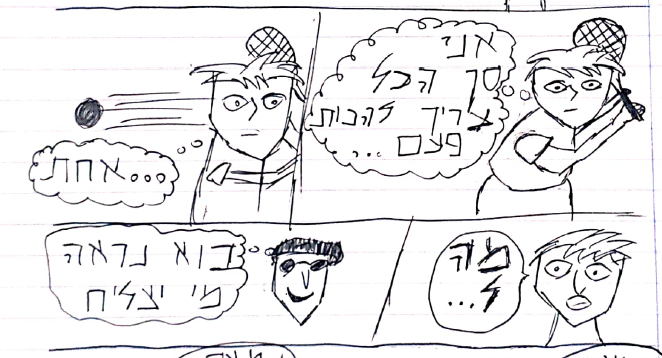 אני
סך הכל
צריך להכות
פעם ...
...אחת
מה
ל...
בוא נראה
מי יצליח